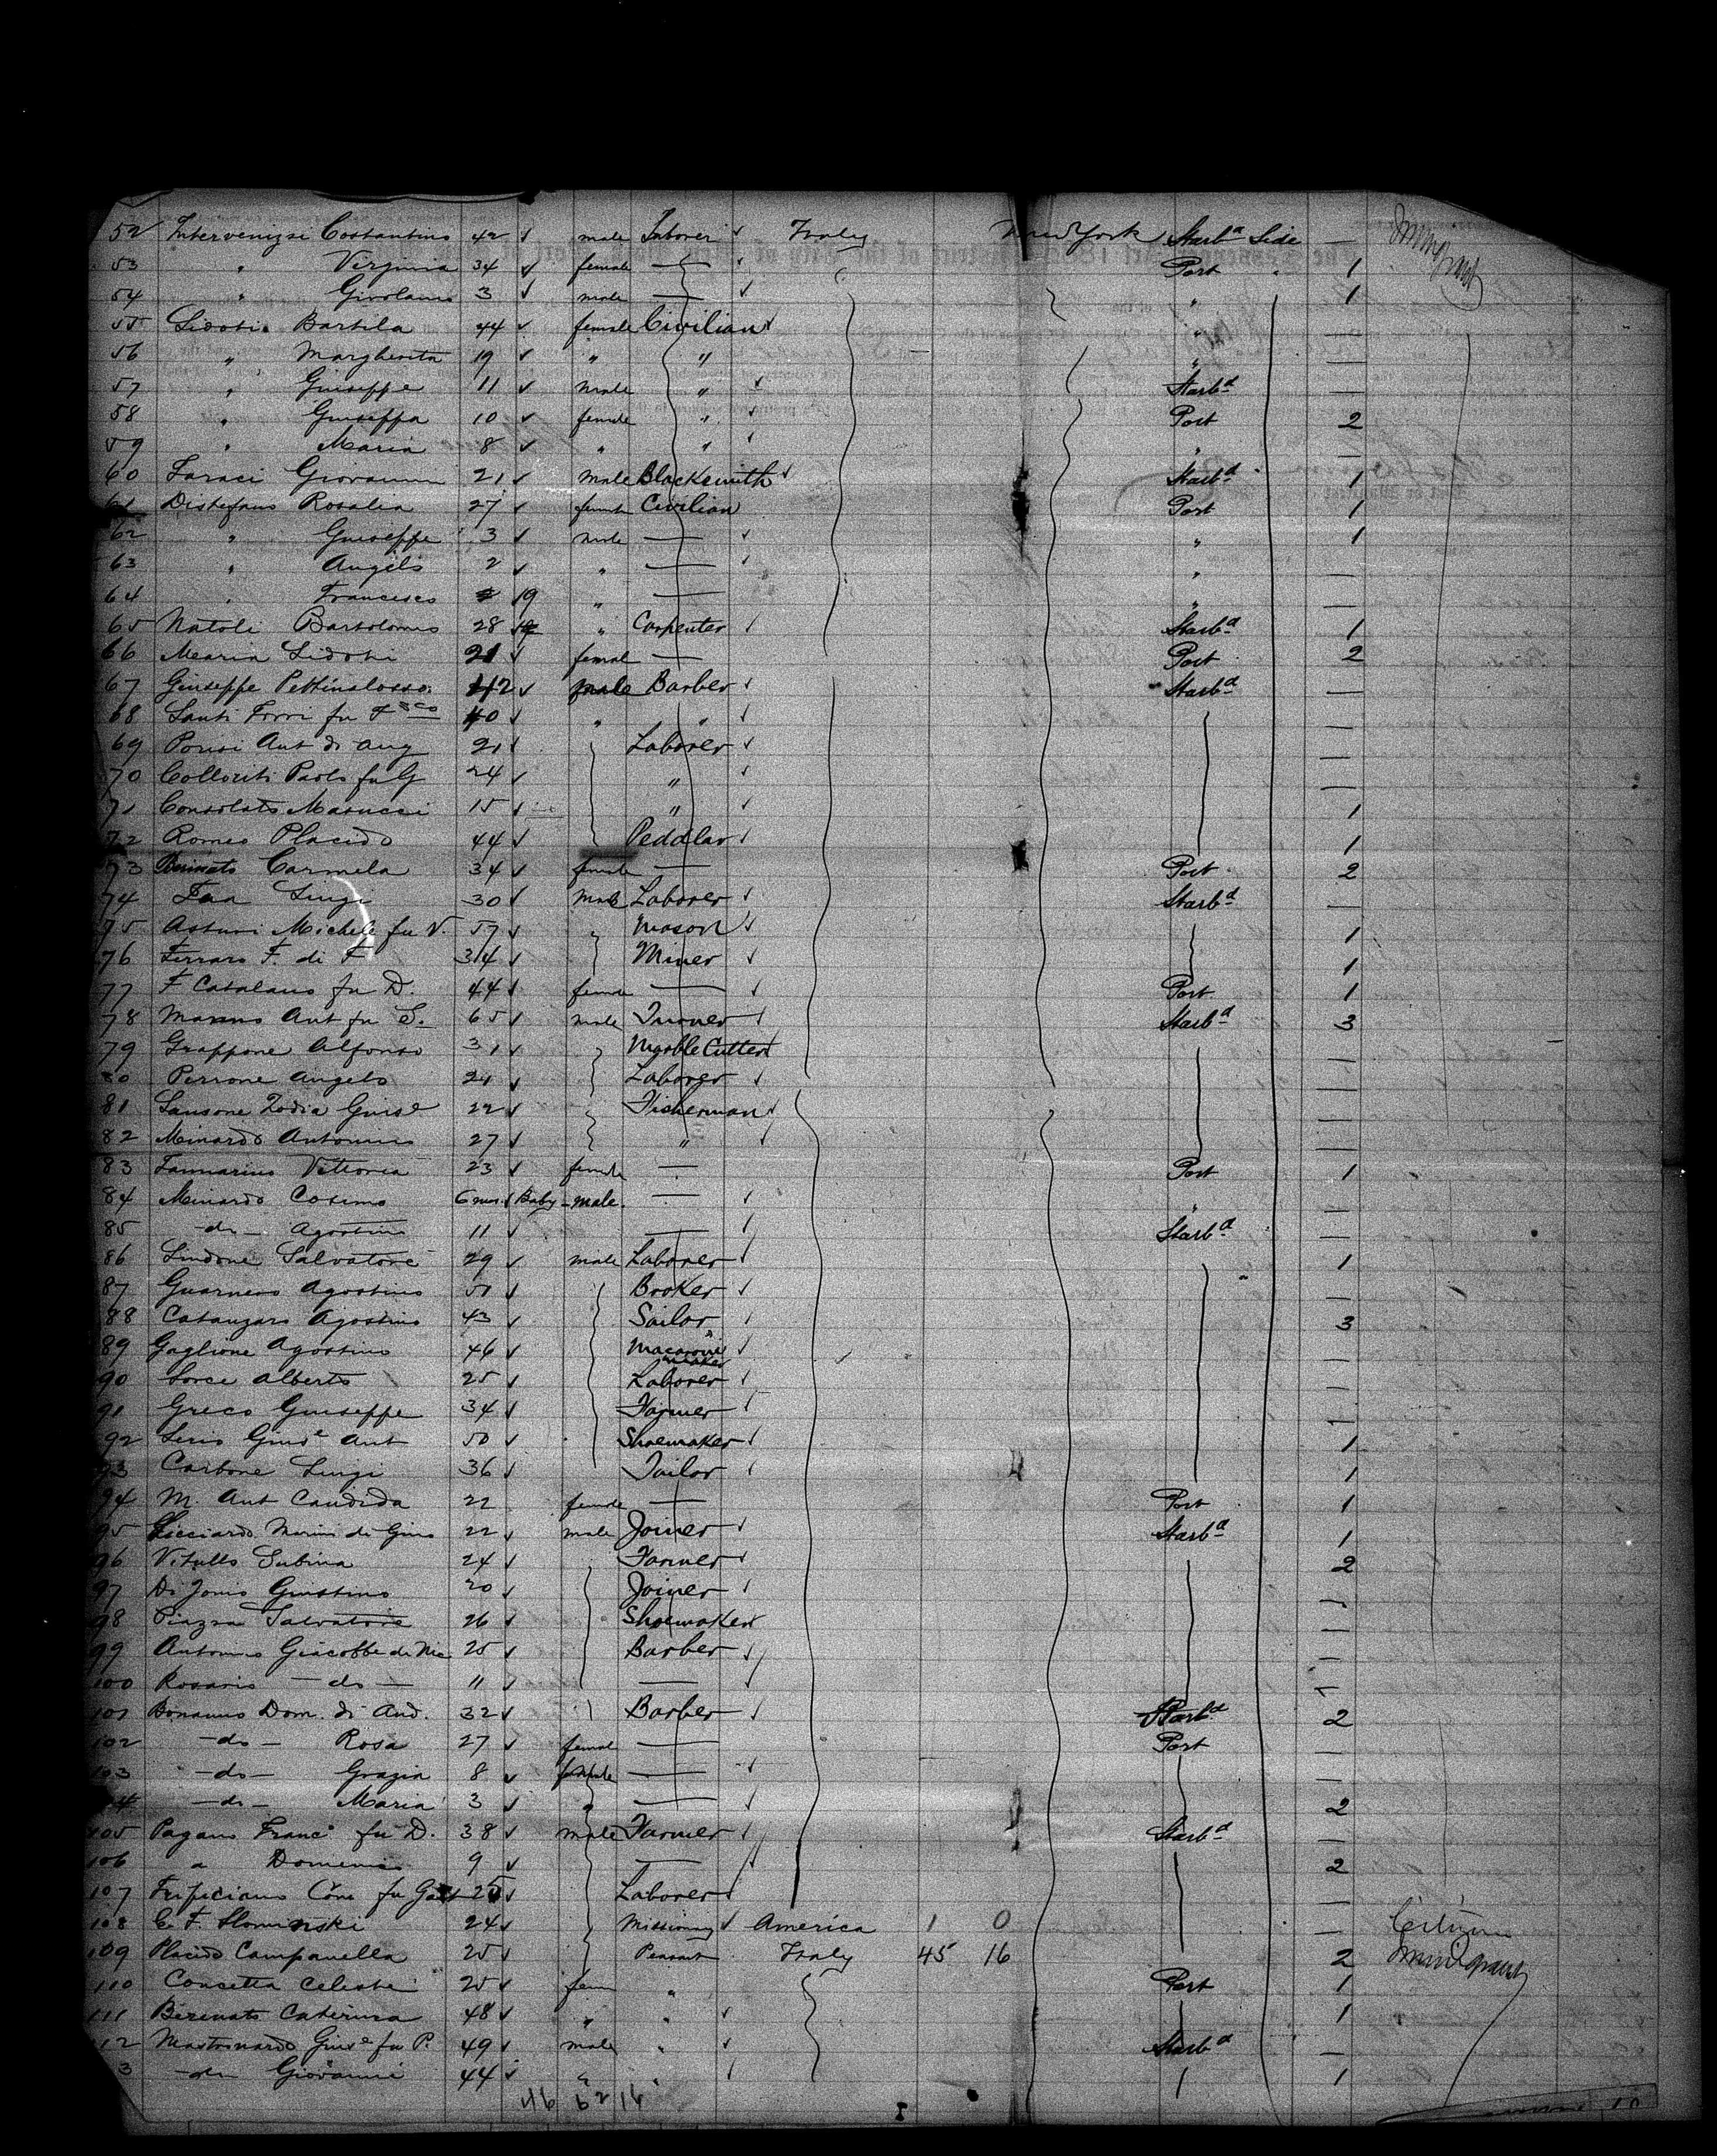 52 Intervenizzi Costantino 42 male Laborer Italy New York Starb.d Side — Immigrant
53 " Virginia 34 female — Port 1
54 " Girolamo 3 male — " 1
55 Lidoti Bartila 44 female Civilian " —
56 " Margherita 19 " " " —
57 " Giuseppe 11 male " Starb.d —
58 " Giuseppa 10 female " Port 2
59 " Maria 8 " " " —
60 Saraci Giovanni 21 male Blacksmith Starb.d 1
61 Distefano Rosalia 27 female Civilian Port 1
62 " Giuseppe 3 male — " 1
63 " Angelo 2 " — " —
64 " Francesco 19 " — " —
65 Natoli Bartolomeo 28 " Carpenter Starb.d 1
66 Maria Lidoti 21 female — Port 2
67 Giuseppe Pettinalosso 42 male Barber Starb.d —
68 Santi Forri fu F.sco 40 " " —
69 Porisi Ant di Ang 21 Laborer —
70 Colloriti Paolo fu G 24 " —
71 Consolato Matucci 15 " 1
72 Romeo Placido 44 Peddlar 1
73 Carmela 34 female — Port 2
74 Luigi 30 male Laborer Starb.d —
75 Asturi Michele fu V. 57 " Mason 1
76 Ferraro F. di F 34 Miner 1
77 F Catalano fu D. 44 female — Port 1
78 Ant fu S. 65 male Turner Starb.d 3
79 Grappone Alfonso 31 Marble Cutter —
80 Perrone Angelo 21 Laborer —
81 Sansone Zodia Gius.e 22 Fisherman —
82 Minardo Antonino 27 " —
83 Vittoria 23 female — Port 1
84 Minardo Cosimo 6 mos Baby - male — " —
85 -do- Agostino 11 — Starb.d —
86 Lindone Salvatore 29 male Laborer 1
87 Guarnero Agostino 51 Broker —
88 Catanzaro Agostino 43 Sailor 3
89 Gaglione Agostino 46 Macaroni maker —
90 Sorce Alberto 25 Laborer —
91 Greco Giuseppe 34 Farmer —
92 Gius.e Ant 50 Shoemaker 1
93 Carbone Luigi 36 Tailor 1
94 M. Ant Candida 22 female — Port 1
95 Licciardo di Gius 22 male Joiner Starb.d 1
96 Vitullo Sabina 24 Farmer 2
97 Di Jonio Giustino 20 Joiner —
98 Piazza Salvatore 26 Shoemaker —
99 Antonio Giacobbe di Nic 25 Barber —
100 Rosario -do- 11 — —
101 Bonanno Dom. di And. 32 Barber Starb.d 2
102 -do- Rosa 27 female — Port —
103 -do- Grazia 8 female — —
104 -do- Maria 3 " — 2
105 Pagano Franc.o fu D. 38 male Farmer Starb.d —
106 " Domenico 9 — 2
107 fu 25 Laborer —
108 C. F. Slominski 24 Missionary America 1 0 — Citizen
109 Placido Campanella 25 Peasant Italy 45 16 2 Immigrant
110 Concetta Celeste 25 fem " Port 1
111 Birenato Caterina 48 " " 1
112 Mastronardo Gius.e fu P. 49 male " Starb.d —
3 -do- Giovanni 44 " " 1
46 62 16